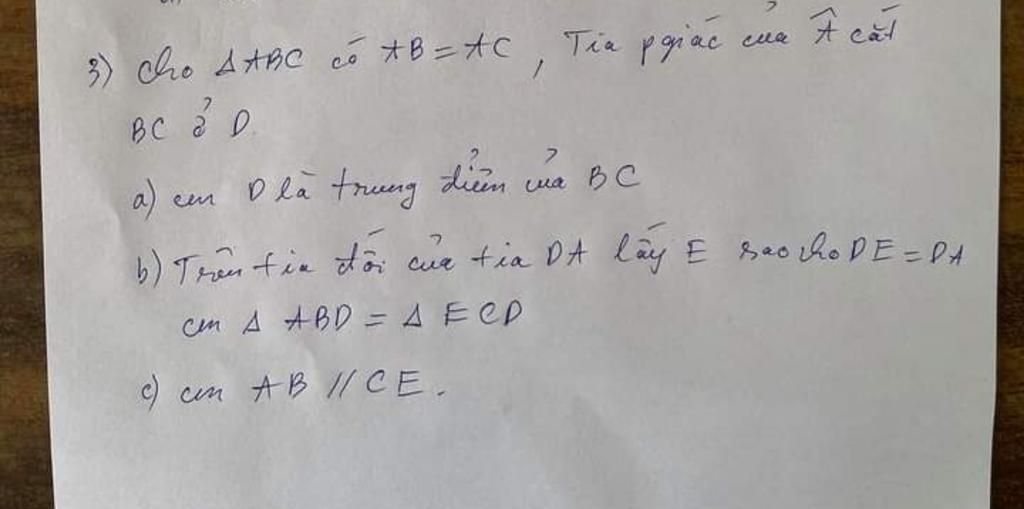 3) Cho Δ ABC có AB = AC, Tia pgiác của Â cắt
BC ở D.
a) cm D là trung điểm của BC
b) Trên tia đối của tia DA lấy E sao cho DE = DA
cm Δ ABD = Δ ECD
c) cm AB // CE.